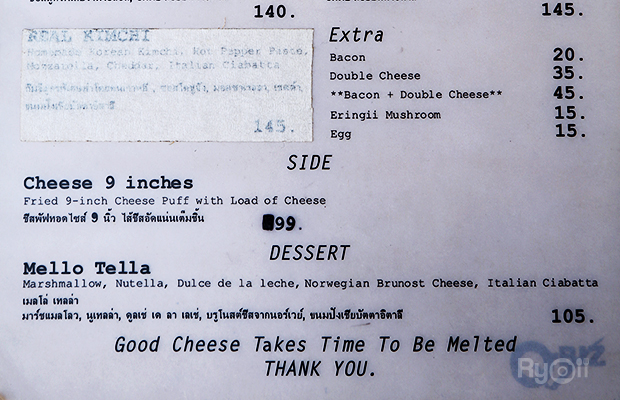 140.
145.
REAL KIMCHI
Homemade Korean Kimchi, Hot Pepper Paste,
Mozzarella, Cheddar, Italian Ciabatta
145.
Extra
Bacon 20.
Double Cheese 35.
**Bacon + Double Cheese** 45.
Eringii Mushroom 15.
Egg 15.
SIDE
Cheese 9 inches
Fried 9-inch Cheese Puff with Load of Cheese
ชีสพัฟทอดไซส์ 9 นิ้ว ไส้ชีสอัดแน่นเต็มชิ้น
99.
DESSERT
Mello Tella
Marshmallow, Nutella, Dulce de la leche, Norwegian Brunost Cheese, Italian Ciabatta
เมลโล่ เทลล่า
มาร์ชแมลโลว, นูเทลล่า, ดูลเช่ เด ลา เลเช่, บรูโนสต์ชีสจากนอร์เวย์, ขนมปังเชียบัตตาอิตาลี
105.
Good Cheese Takes Time To Be Melted
THANK YOU.
Ryoii